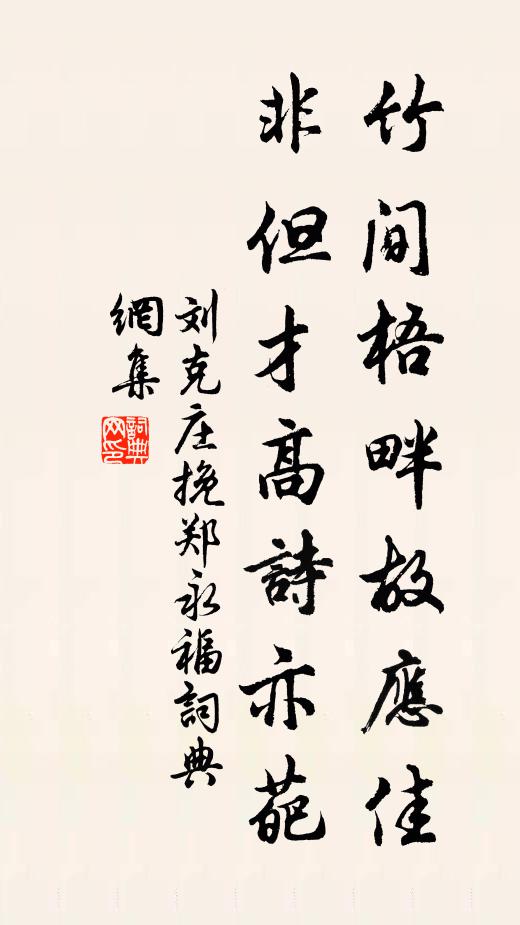 竹間梧畔故應佳
非但才高詩亦葩
刘克庄挽郑永福詞典
網集
詞典
网印